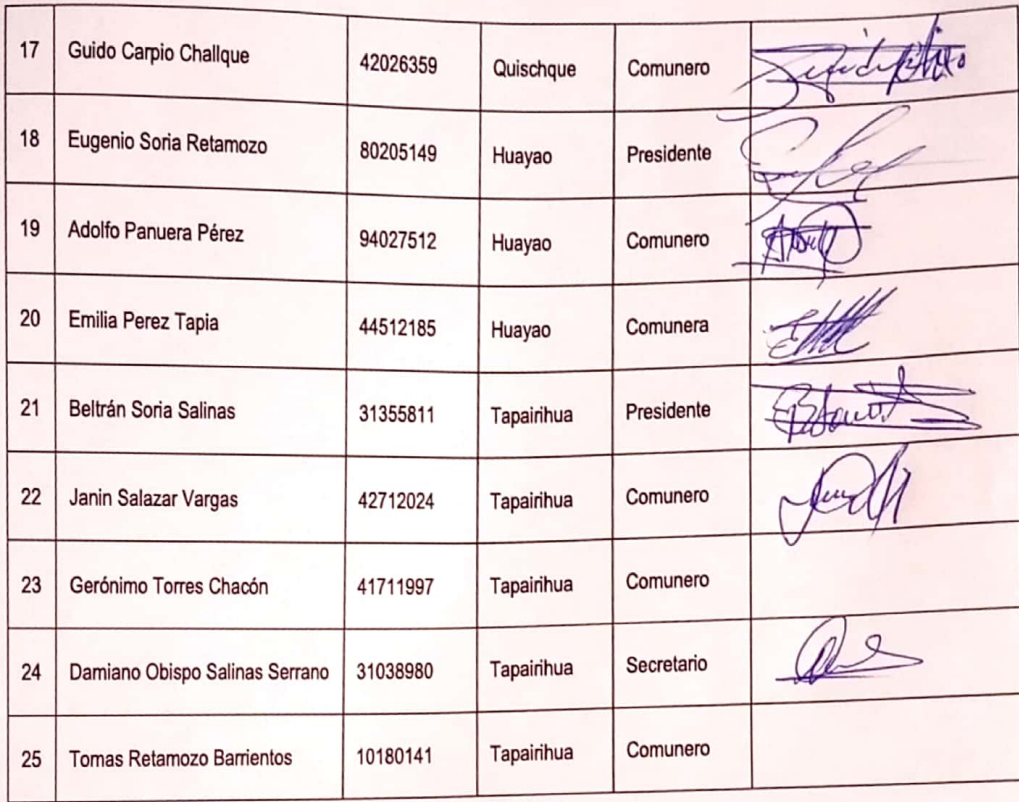 17 Guido Carpio Challque 42026359 Quischque Comunero
18 Eugenio Soria Retamozo 80205149 Huayao Presidente
19 Adolfo Panuera Pérez 94027512 Huayao Comunero
20 Emilia Perez Tapia 44512185 Huayao Comunera
21 Beltrán Soria Salinas 31355811 Tapairihua Presidente
22 Janin Salazar Vargas 42712024 Tapairihua Comunero
23 Gerónimo Torres Chacón 41711997 Tapairihua Comunero
24 Damiano Obispo Salinas Serrano 31038980 Tapairihua Secretario
25 Tomas Retamozo Barrientos 10180141 Tapairihua Comunero